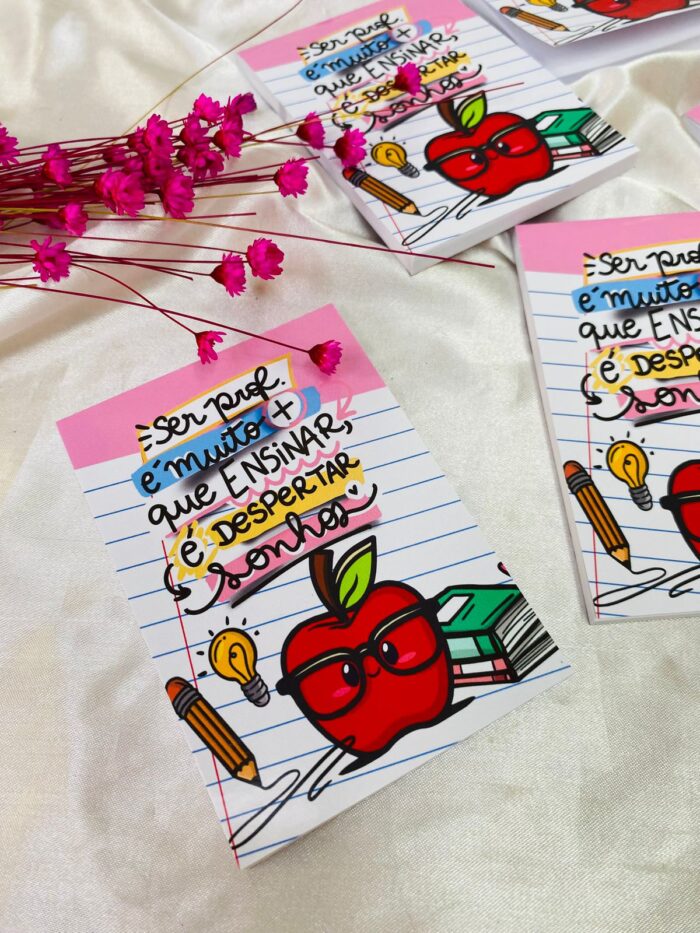 Ser prof.
é muito +
que ENSINAR,
é DESPERTAR
sonhos
Ser prof.
é muito +
que ENSINAR,
é DESPERTAR
sonhos
Ser prof
é muito
que ENS
é DESPER
son